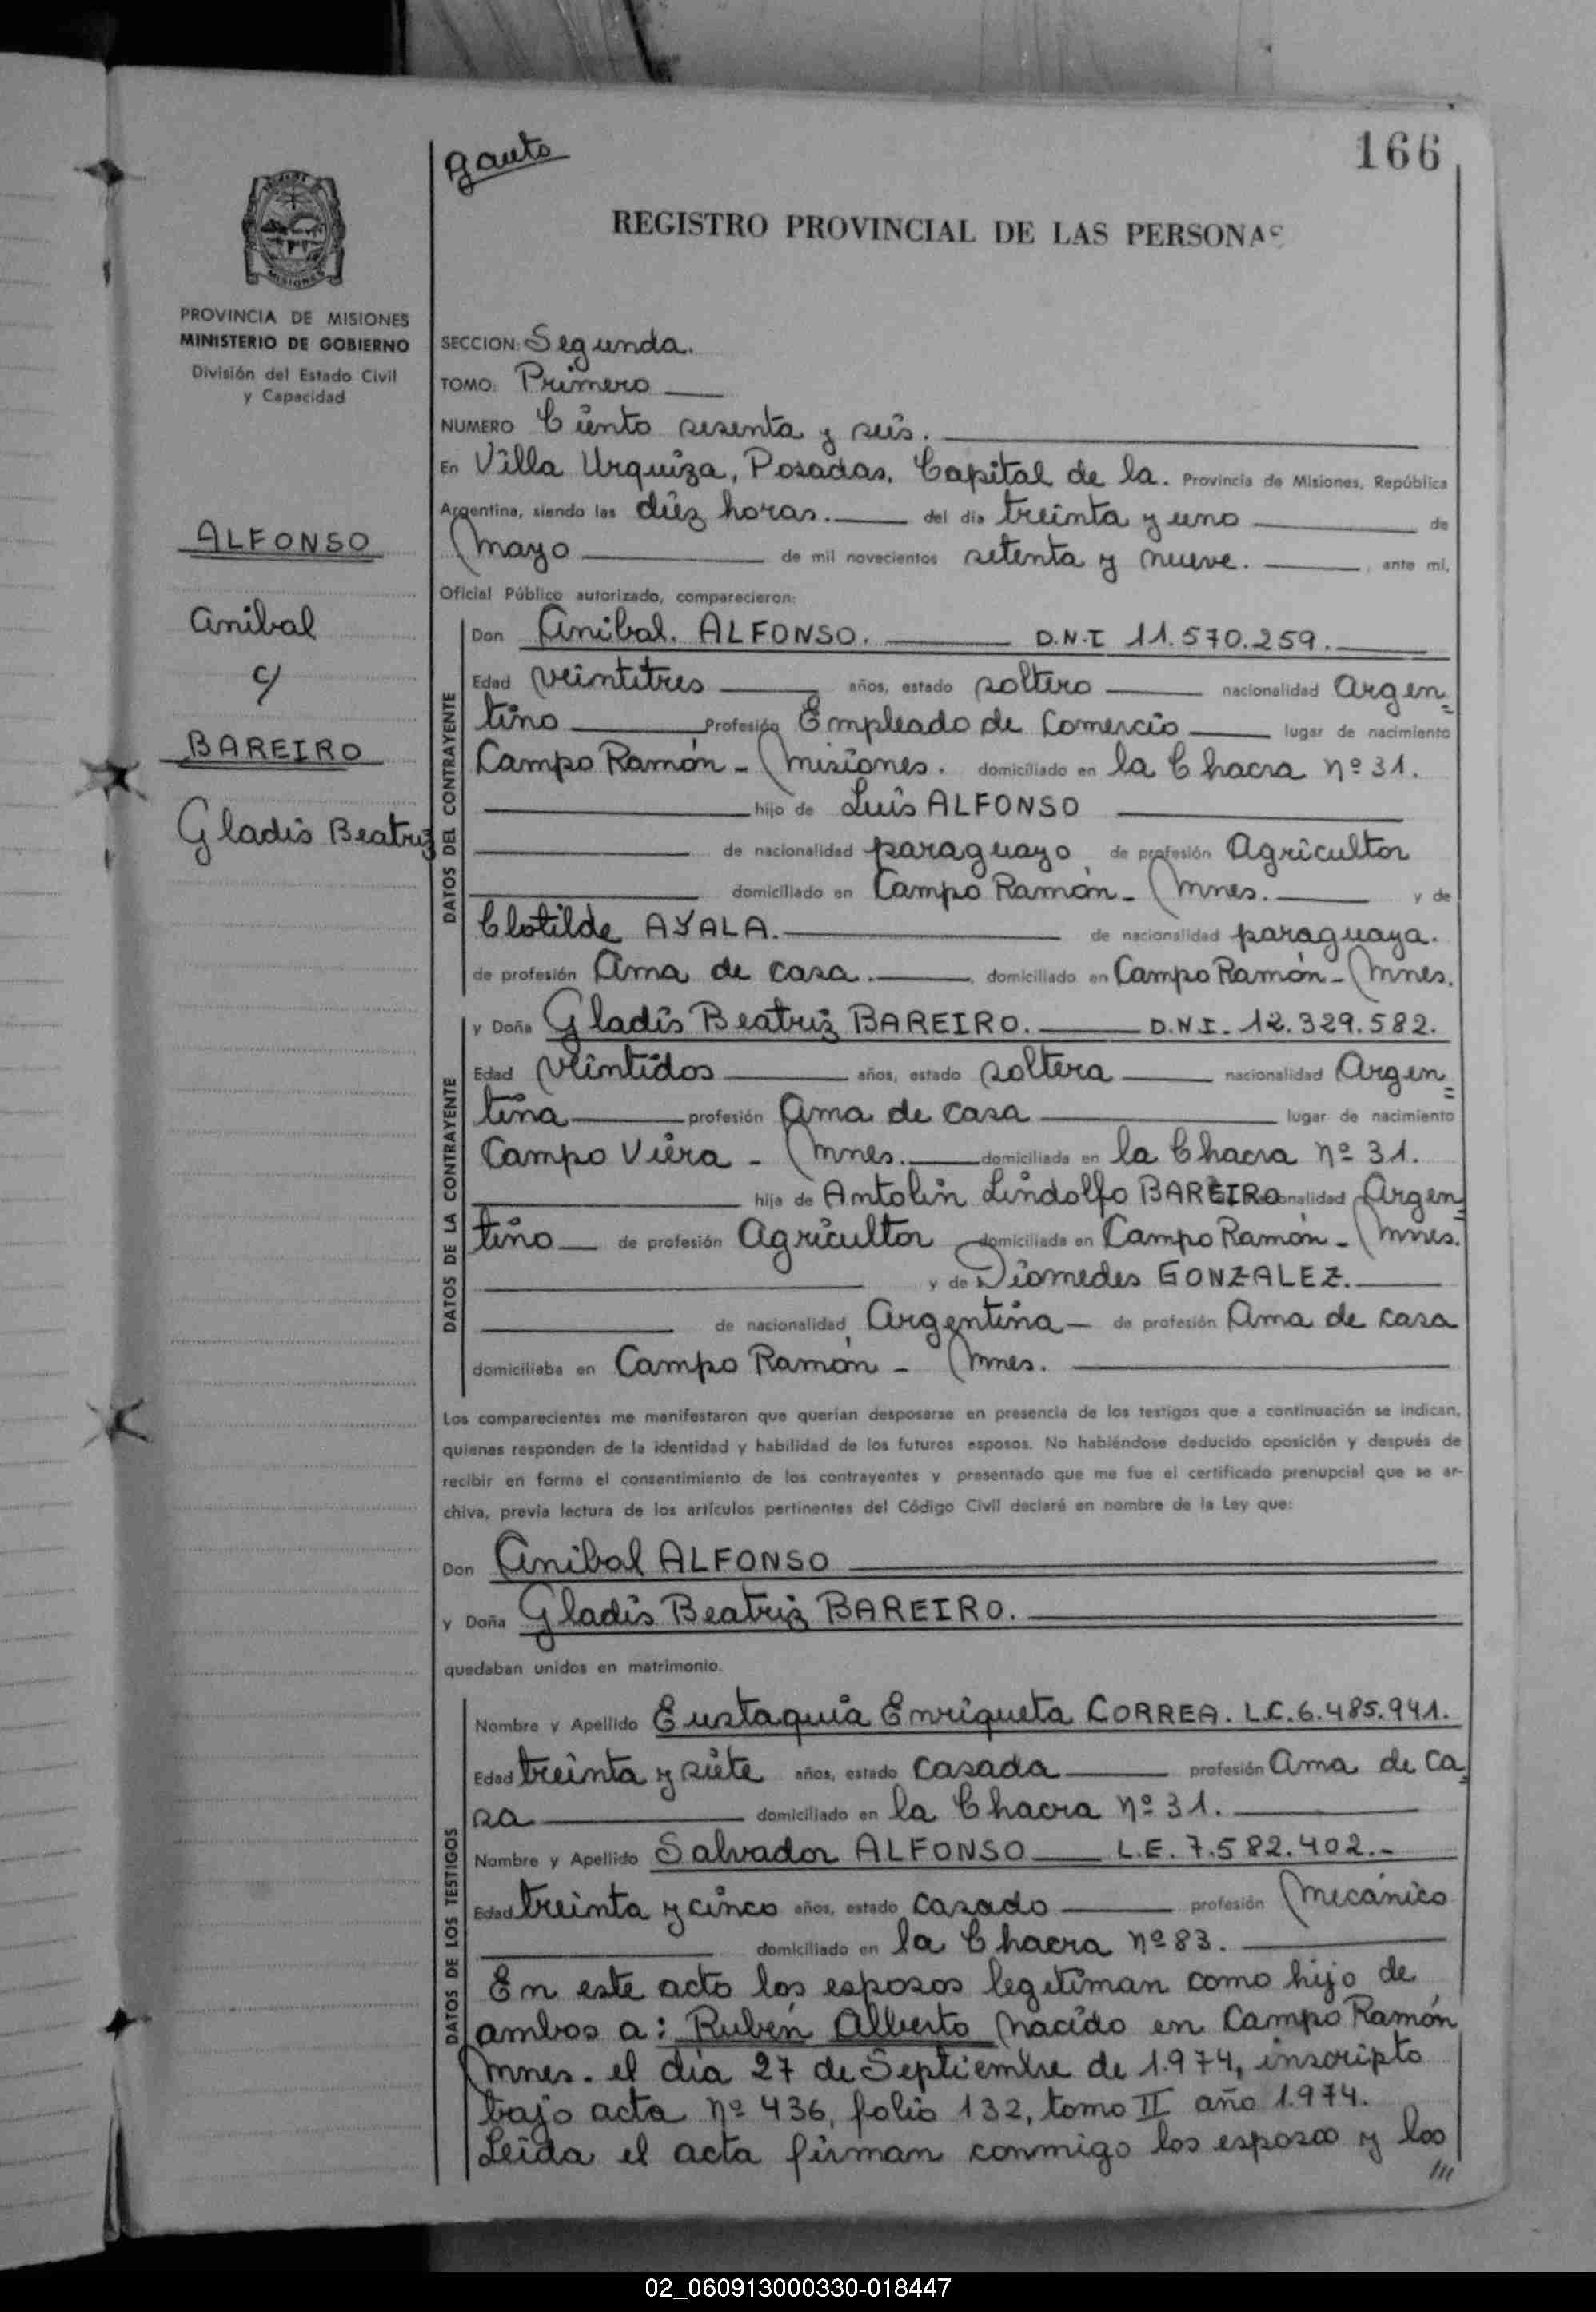 166
Gauto
REGISTRO PROVINCIAL DE LAS PERSONAS
MISIONES
PROVINCIA DE MISIONES
MINISTERIO DE GOBIERNO
División del Estado Civil
y Capacidad
ALFONSO
Anibal
c/
BAREIRO
Gladis Beatriz
SECCION: Segunda.
TOMO: Primero
NUMERO Ciento sesenta y seis.
En Villa Urquiza, Posadas, Capital de la. Provincia de Misiones, República
Argentina, siendo las diez horas. del día treinta y uno de
Mayo de mil novecientos setenta y nueve. , ante mí,
Oficial Público autorizado, comparecieron:
DATOS DEL CONTRAYENTE
Don Anibal. ALFONSO. D.N.I 11.570.259.
Edad veintitres años, estado soltero nacionalidad Argen=
tino Profesión Empleado de Comercio lugar de nacimiento
Campo Ramón - Misiones. domiciliado en la Chacra nº 31.
hijo de Luis ALFONSO
de nacionalidad paraguayo, de profesión Agricultor
domiciliado en Campo Ramón - Mnes. y de
Clotilde AYALA. de nacionalidad paraguaya.
de profesión Ama de casa. , domiciliado en Campo Ramón - Mnes.
DATOS DE LA CONTRAYENTE
y Doña Gladis Beatriz BAREIRO. D.N.I. 12.329.582.
Edad veintidos años, estado soltera nacionalidad Argen=
tina profesión Ama de casa lugar de nacimiento
Campo Viera - Mnes. domiciliada en la Chacra nº 31.
hija de Antolin Lindolfo BAREIRO nacionalidad Argen=
tino de profesión Agricultor domiciliada en Campo Ramón - Mnes.
y de Diomedes GONZALEZ.
de nacionalidad Argentina - de profesión Ama de casa
domiciliaba en Campo Ramón - Mnes.
Los comparecientes me manifestaron que querían desposarse en presencia de los testigos que a continuación se indican,
quienes responden de la identidad y habilidad de los futuros esposos. No habiéndose deducido oposición y después de
recibir en forma el consentimiento de los contrayentes y presentado que me fue el certificado prenupcial que se ar-
chiva, previa lectura de los artículos pertinentes del Código Civil declaré en nombre de la Ley que:
Don Anibal ALFONSO
y Doña Gladis Beatriz BAREIRO.
quedaban unidos en matrimonio.
DATOS DE LOS TESTIGOS
Nombre y Apellido Eustaquia Enriqueta CORREA. L.C. 6.485.941.
Edad treinta y siete años, estado casada profesión Ama de ca=
sa domiciliado en la Chacra nº 31.
Nombre y Apellido Salvador ALFONSO L.E. 7.582.402.-
Edad treinta y cinco años, estado casado profesión Mecánico
domiciliado en la Chacra nº 83.
En este acto los esposos legitiman como hijo de
ambos a: Rubén Alberto nacido en Campo Ramón
Mnes. el día 27 de Septiembre de 1.974, inscripto
bajo acta nº 436, folio 132, tomo II año 1.974.
Leida el acta firman conmigo los esposos y los
///
02_060913000330-018447